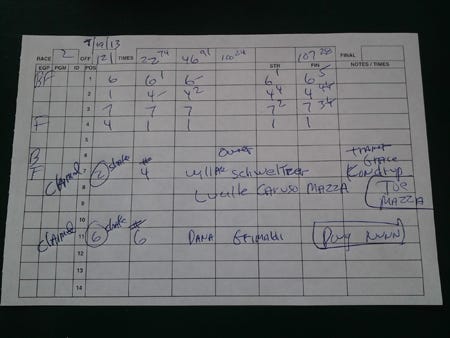 9/19/13
RACE 2 OFF 121 TIMES 22 74 46 91 100 24 107 28 FINAL
EQP PGM ID POS STR FIN NOTES / TIMES
BF 1 6 6 1 6 - 6 1 6 5
2 1 4 - 4 2 4 4 4
3 7 7 7 7 2 7
F 4 4 1 1 1 1
5
B 6 owner trainer
F 7 Claimed 2 shake 4 Schweitzer Grace
8 Lucille Caruso Mazza Joe
9 Mazza
10
Claimed 11 6 shake # 6 Dana Grimaldi Doug Nunn
12
13
14